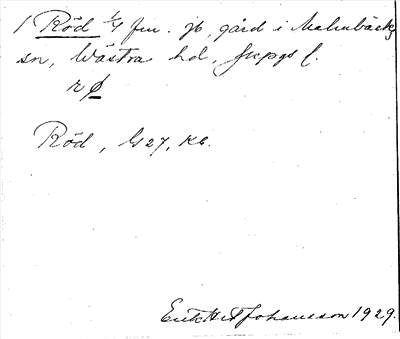 1 Röd 1/4 fm. jb, gård i Malmbäcks
sn, Wästra hd, Jkpgs l.
r ø
Röd, G27, KB.
Erik H A Johansson 1929.